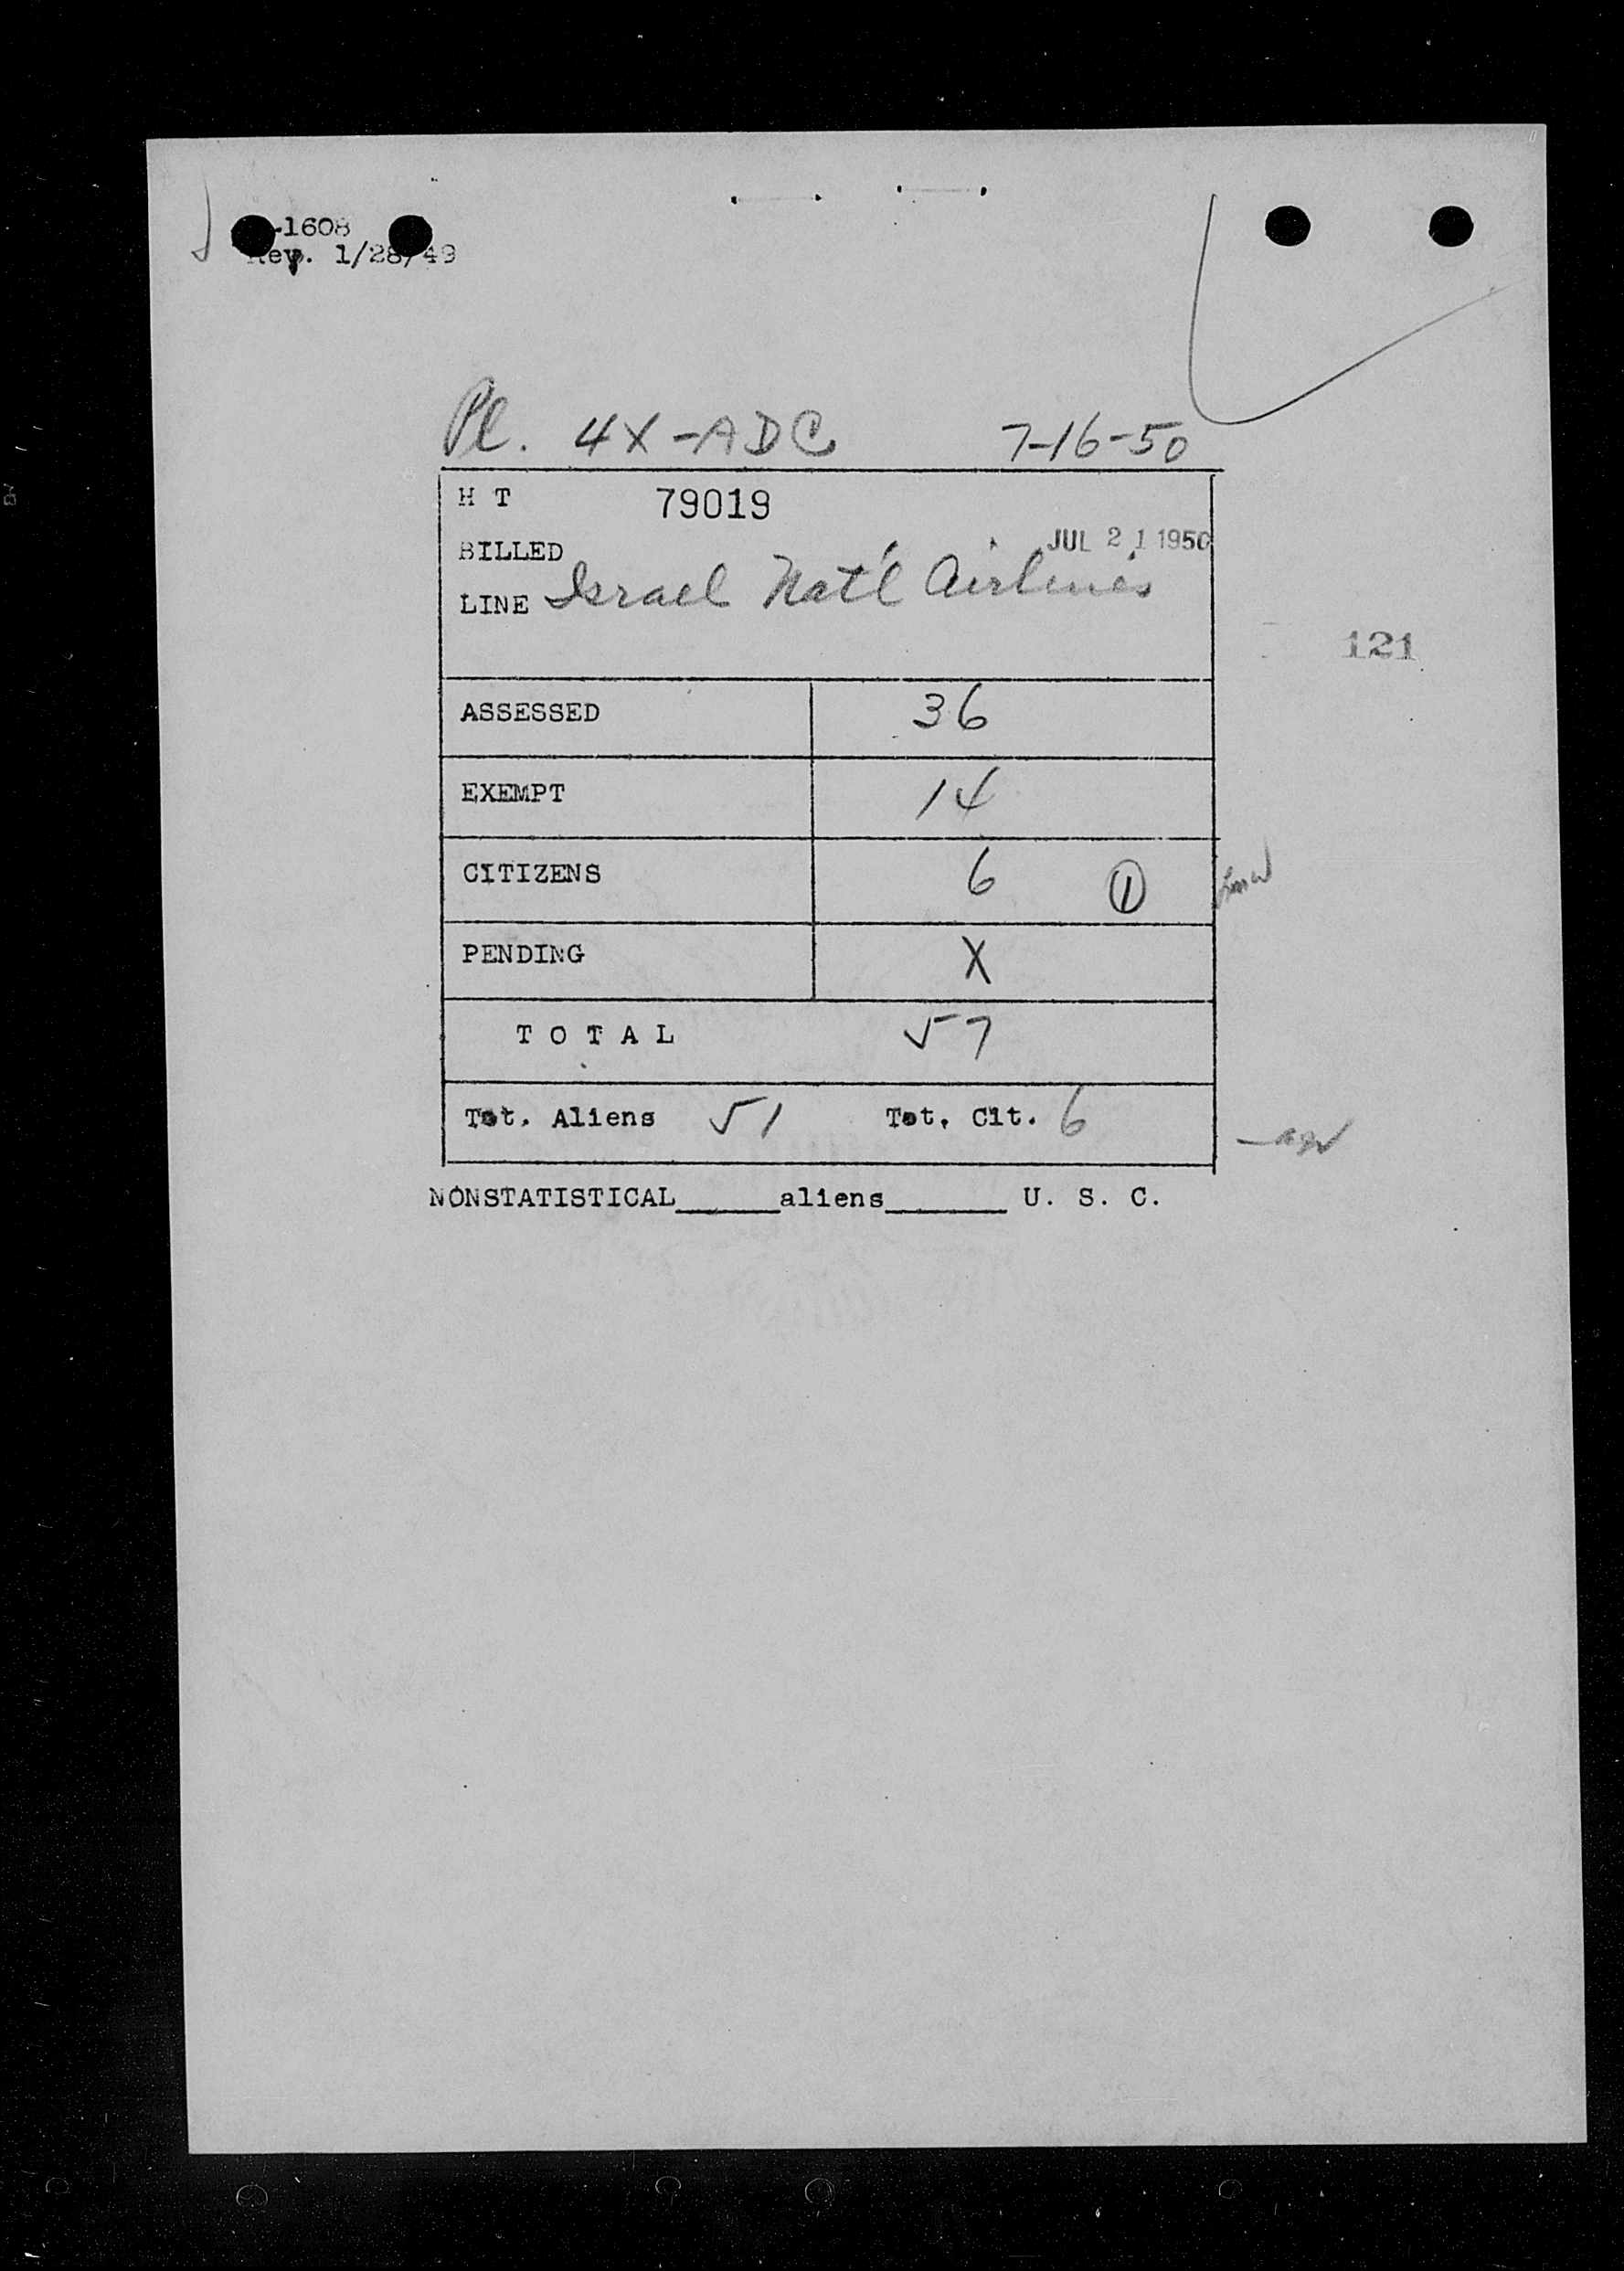 -1608
Rev. 1/28/49
Pl. 4X-ADC 7-16-50
H T 79019
BILLED JUL 21 1950
LINE Israel Nat'l Airlines
121
ASSESSED 36
EXEMPT 14
CITIZENS 6 1
PENDING X
T O T A L 57
Tot. Aliens 51 Tot. Cit. 6
NONSTATISTICAL______aliens_______ U. S. C.